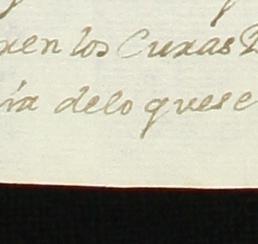 ren los Curas
ria delo quese